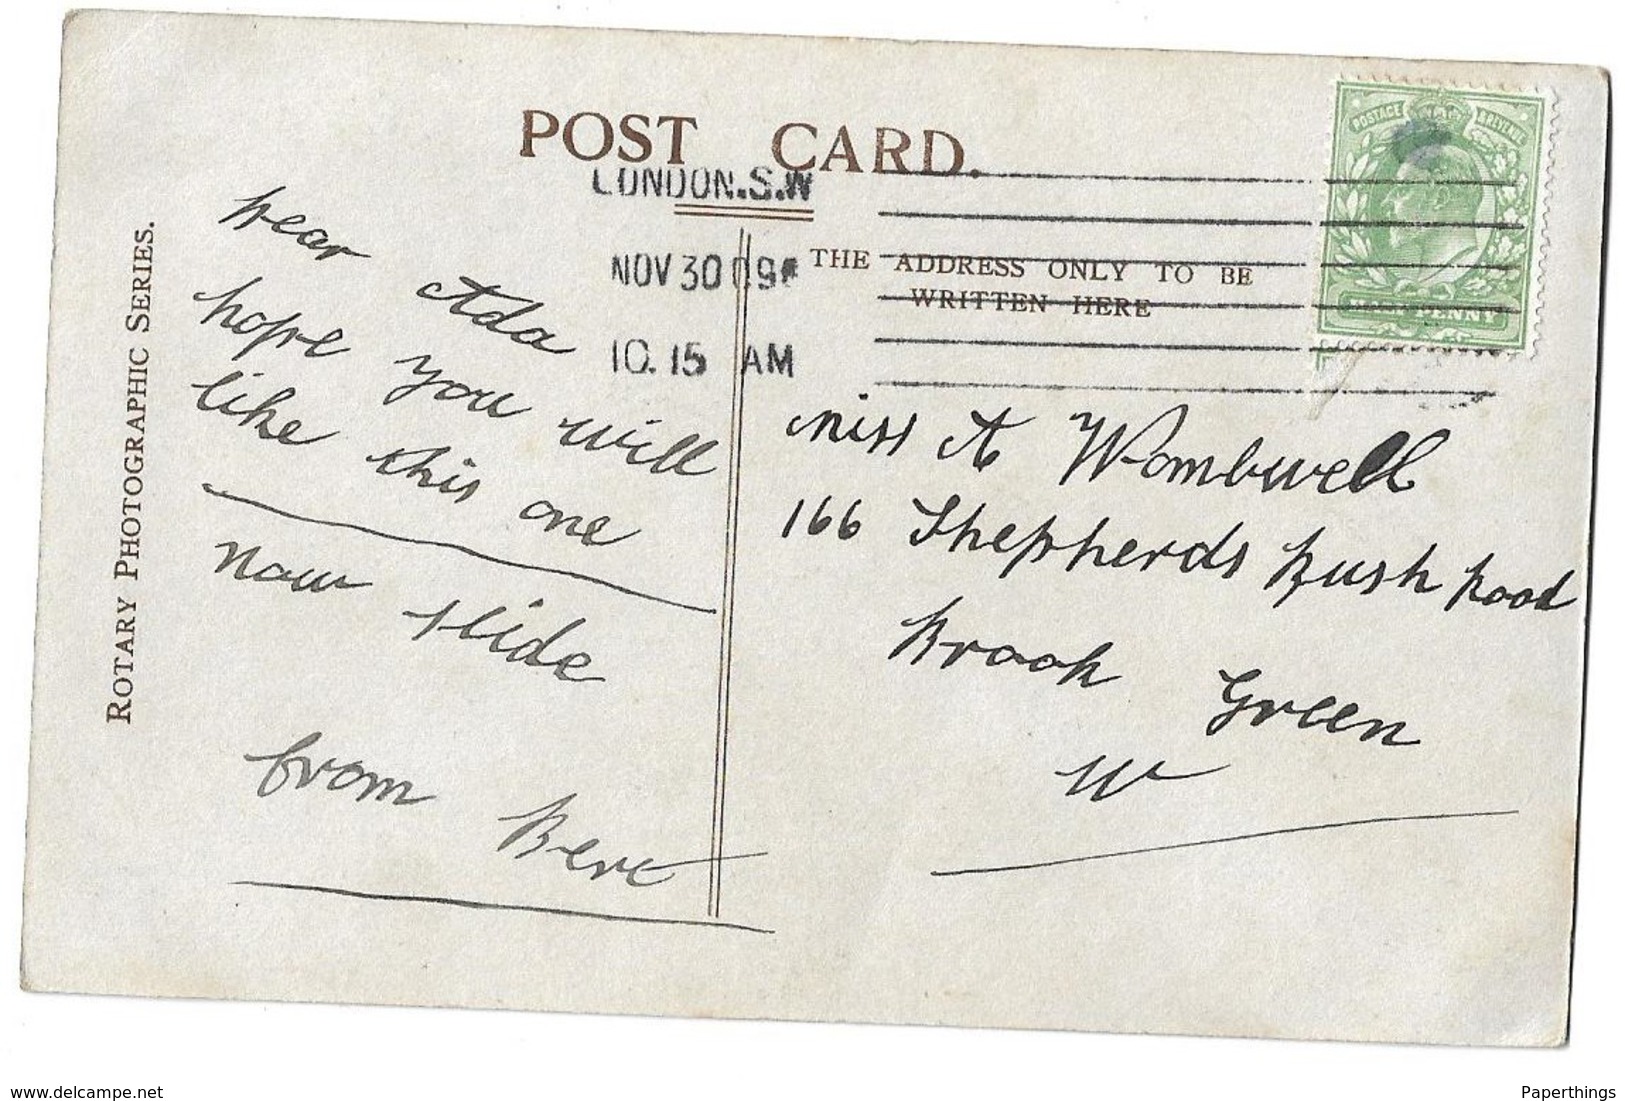 POST CARD.
LONDON.S.W
NOV 30 09
10.15 AM
THE ADDRESS ONLY TO BE
WRITTEN HERE
POSTAGE REVENUE
HALF PENNY
ROTARY PHOTOGRAPHIC SERIES.
Dear Ada
hope you will
like this one
now slide
from Bert
Miss A Wombwell
166 Shepherds Bush Road
Brook Green
W
delcampe.net
Paperthings